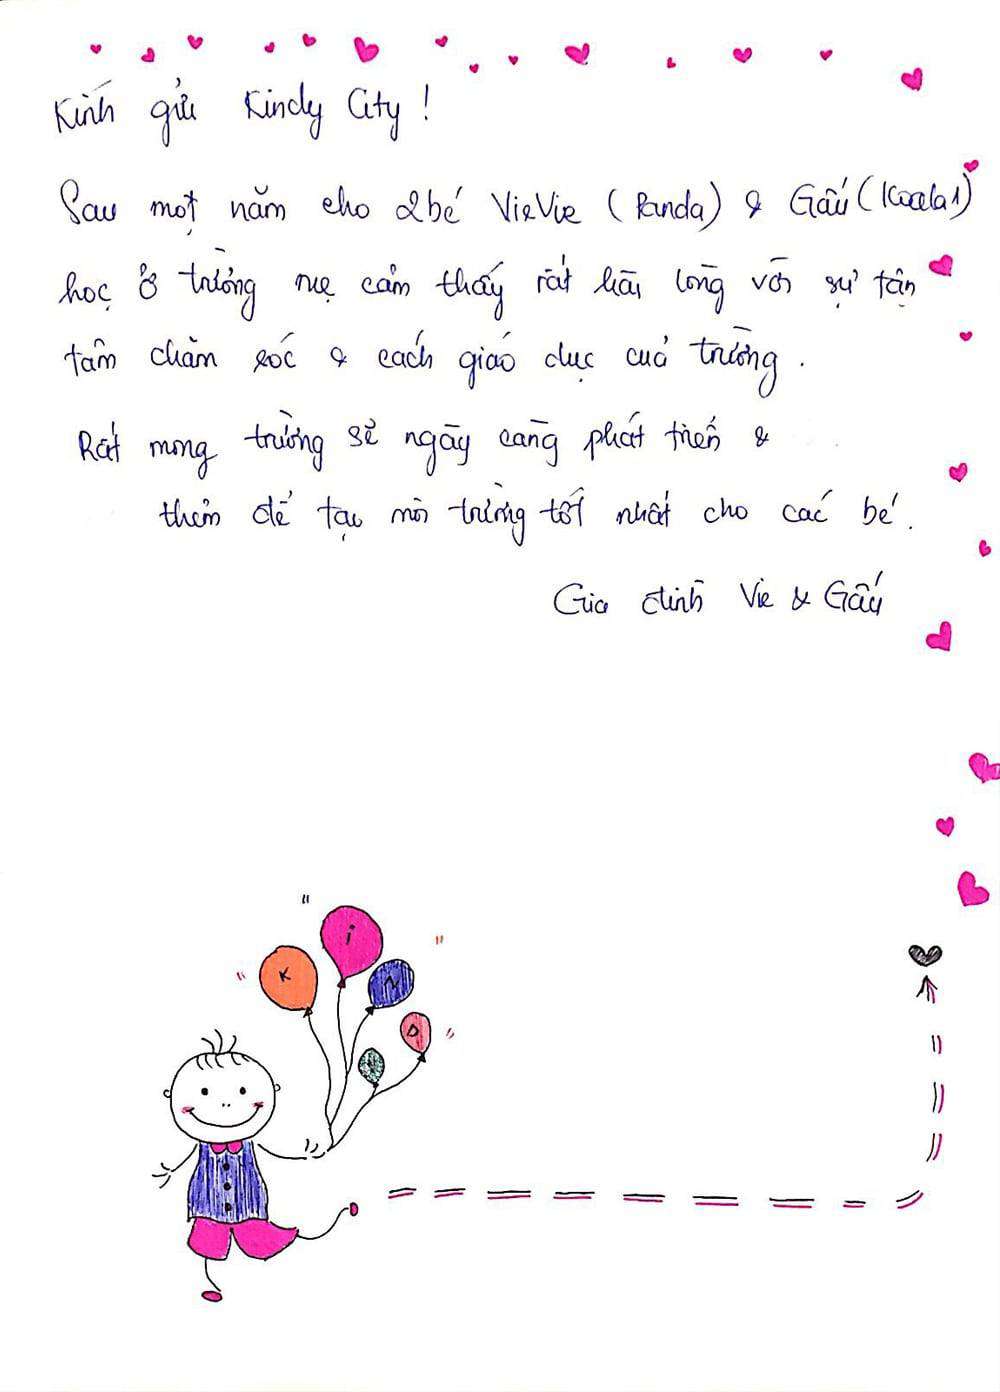 Kính gửi Kindy City !
Sau một năm cho 2 bé VieVie (Panda) & Gấu (Koala1)
học ở trường mẹ cảm thấy rất hài lòng với sự tận
tâm chăm sóc & cách giáo dục của trường.
Rất mong trường sẽ ngày càng phát triển &
thêm để tạo môi trường tốt nhất cho các bé.
Gia đình Vie & Gấu
K i N D